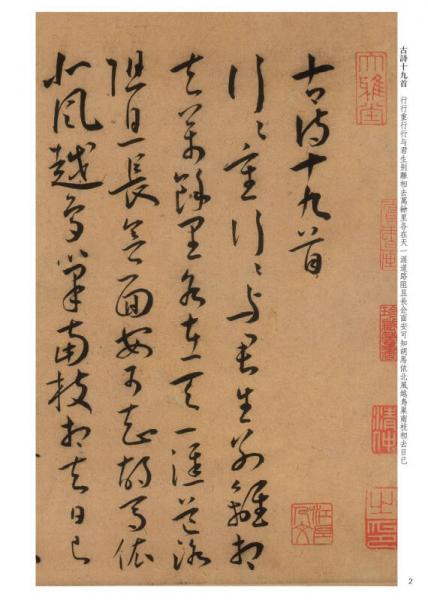 古詩十九首　行行重行行与君生别離相去萬餘里各在天一涯道路阻且長会面安可知胡馬依北風越鳥巢南枝相去日已
大雅堂
之印
古詩十九首
行〻重行〻与君生别離相
去萬餘里各在天一涯道路
阻且長会面安可知胡馬依
北風越鳥巢南枝相去日已
2